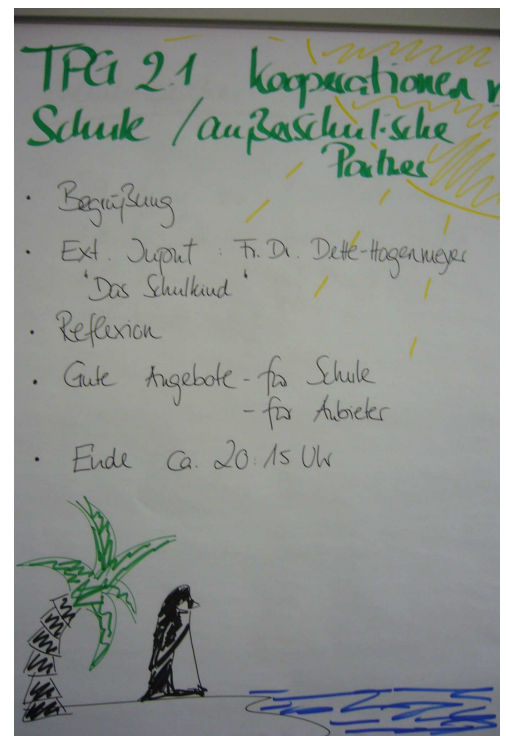 TPG 2.1 Kooperationen
Schule / außerschulische
Partner
· Begrüßung
· Ext. Input : Fr. Dr. Dette-Hagenmeyer
"Das Schulkind"
· Reflexion
· Gute Angebote - für Schule
- für Anbieter
· Ende ca. 20:15 Uhr